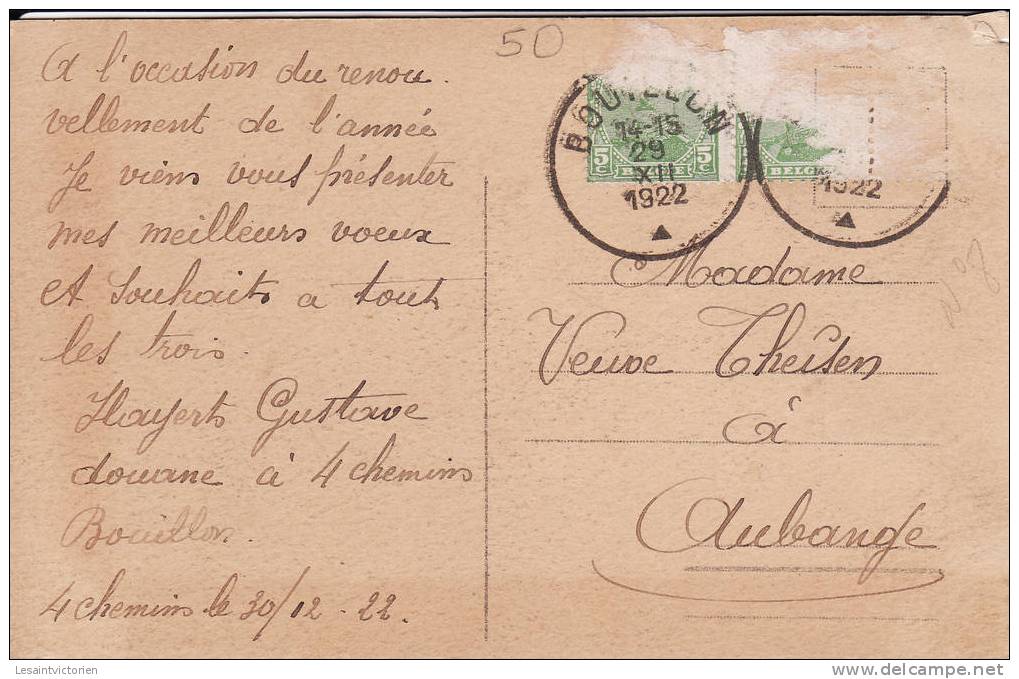 50
A l'occasion du renou
vellement de l'année
Je viens vous présenter
mes meilleurs voeux
et souhaits a tout
les trois.
Hayert Gustave
douane à 4 chemins
Bouillon.
4 chemins le 30/12 - 22.
BOUILLON
14-15
29
XII
1922
5 C 5 C
BELG
1922
Madame
Veuve Theisen
à
Aubange
N° 8
Lesaintvictorien
www.delcampe.net